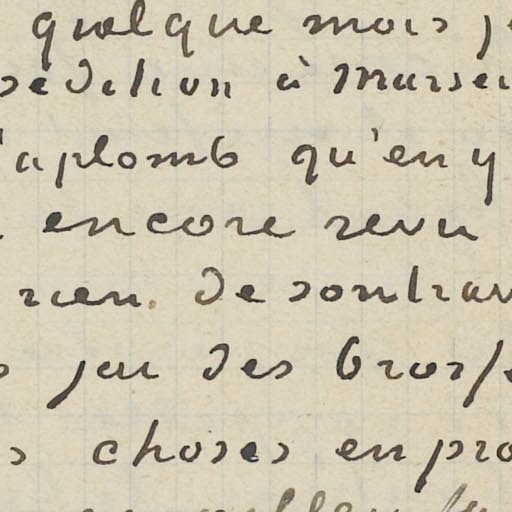 quelque mois j
sedition à Marsei
'aplomb qu'en y
encore revu
rien. de son trav
jai des bross
s choses en pro